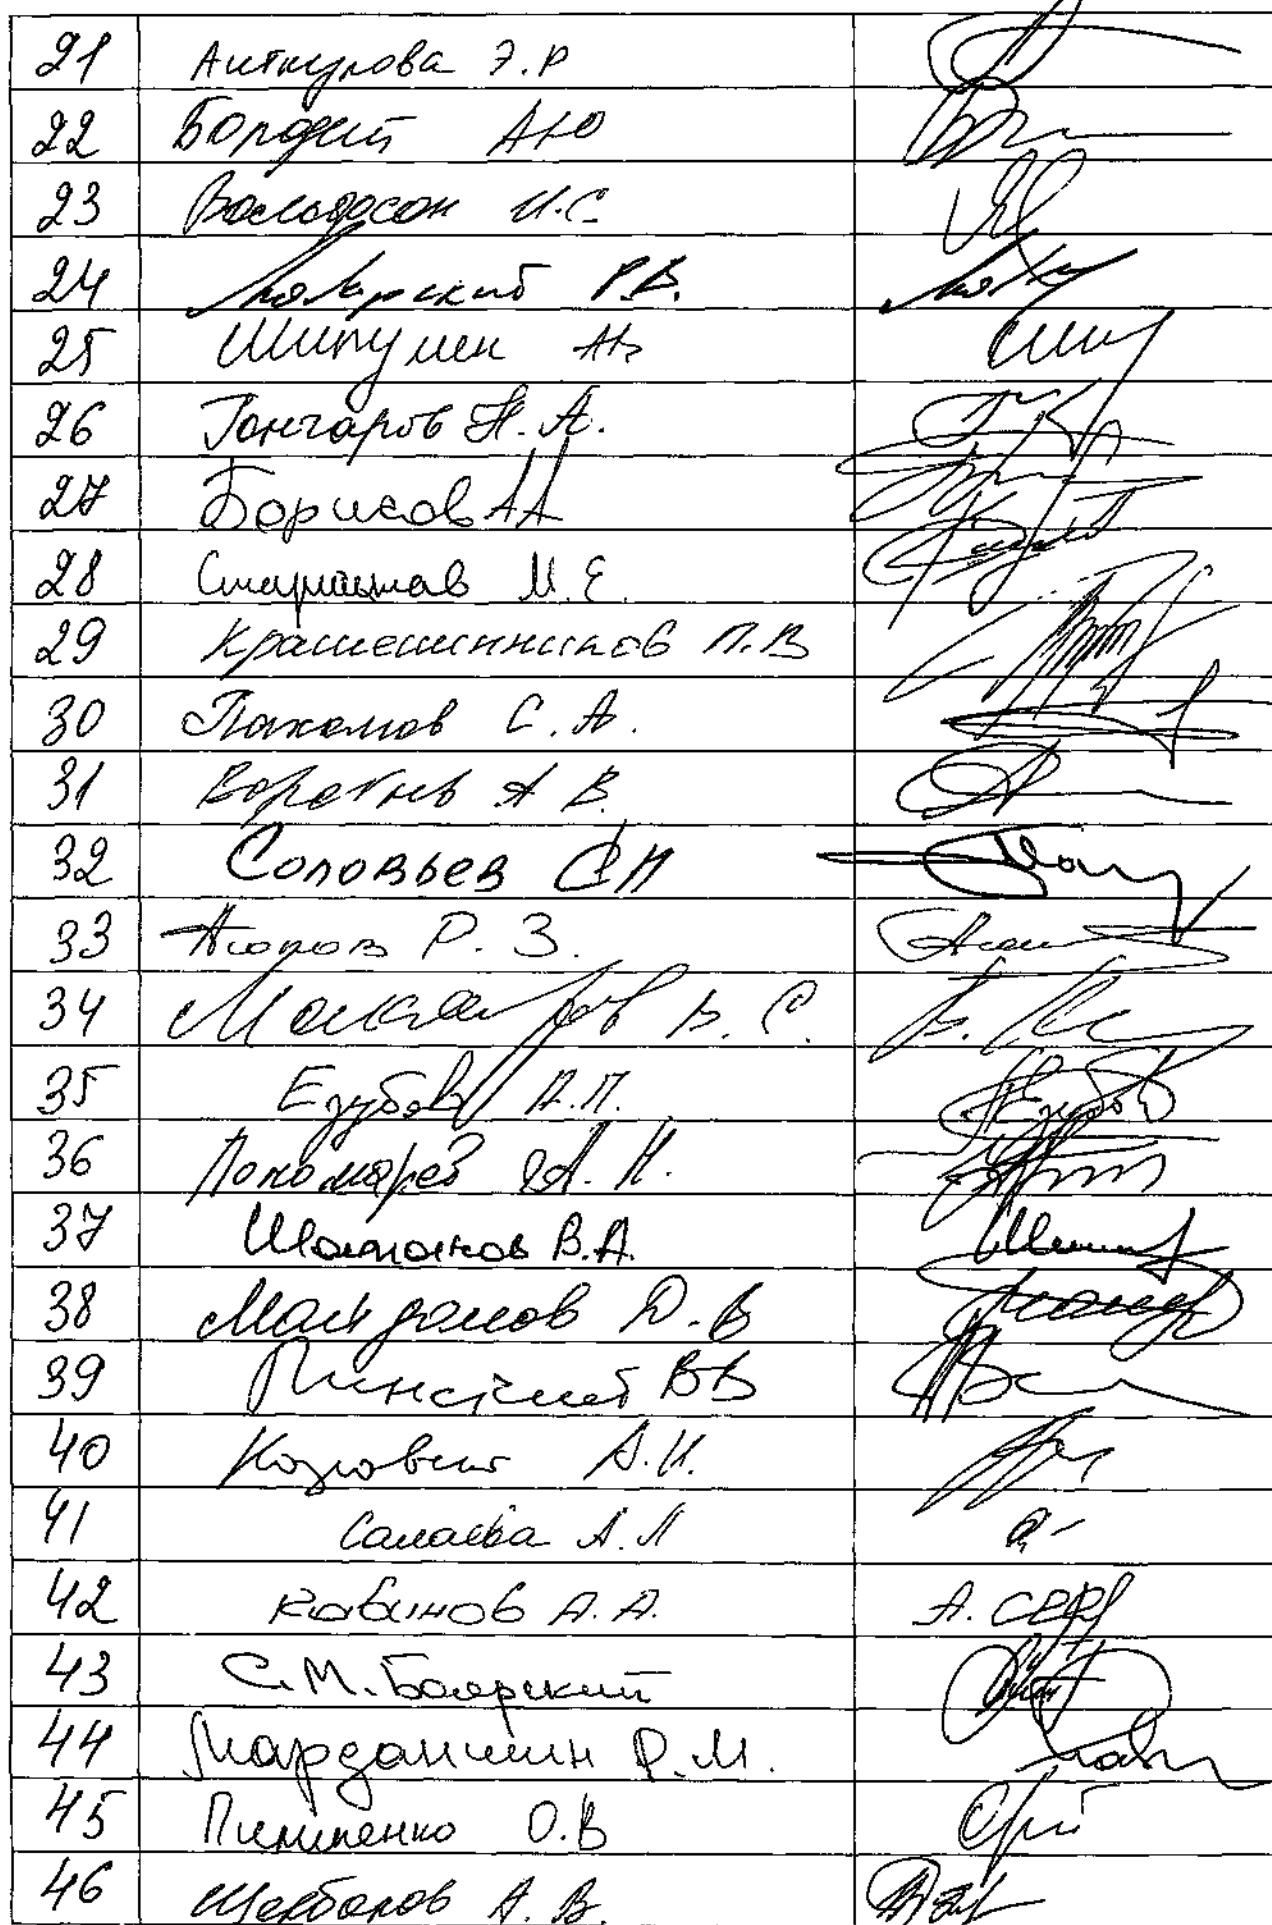 21 Аиткулова Э.Р
22 Бондит АЮ
23 Вольфсон И.С.
24 Лоярский Р.В.
25 Шипулин АВ
26 Гончаров Н.А.
27 Борисов АА
28 Старшинов М.Е.
29 Крашенинников П.В
30 Пахомов С.А.
31 Воробьев А В.
32 Соловьев СН
33 Аюпов Р.З.
34 Макаров В.С.
35 Езубов А.П.
36 Пономарев А.Н.
37 Шаманов В.А.
38 Майданов Д.В
39 Пинский ВВ
40 А.И.
41 А.Л
42 Кабанов А.А.
43 С.М.Боярский
44 Марданшин Р.М.
45 Пилипенко О.В
46 Щербаков А.В.